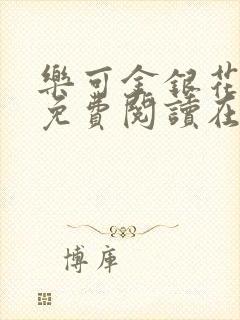 樂可金銀花
免費閱讀在
博库